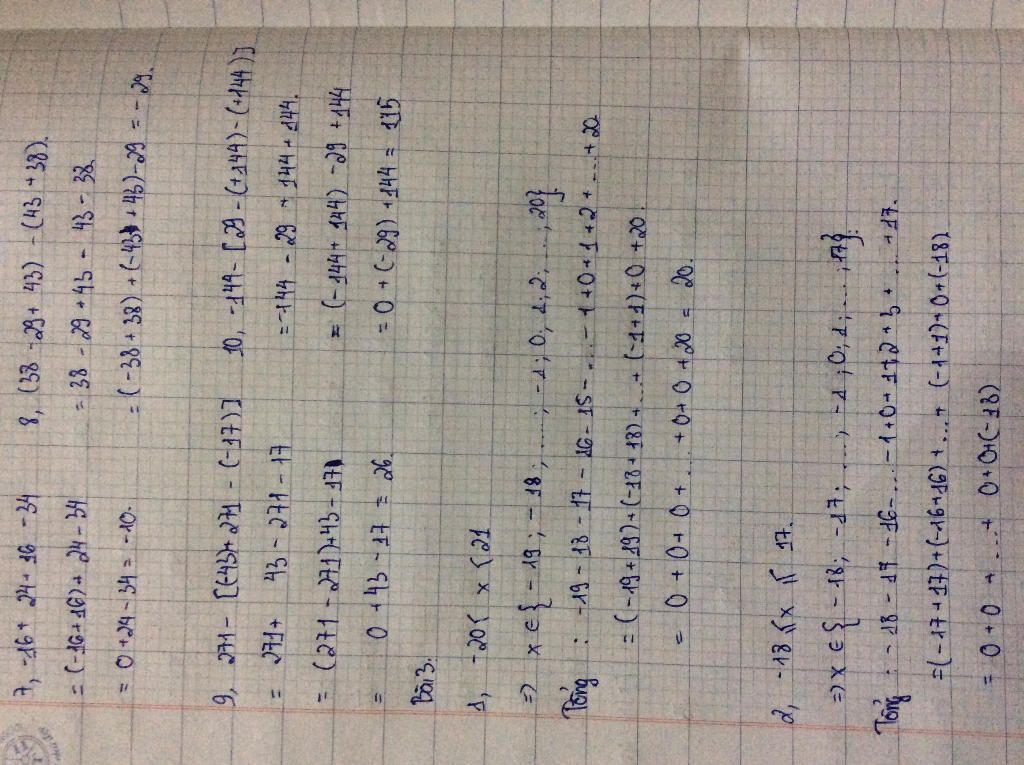 7, -16 + 24 + 16 - 34
= (-16 + 16) + 24 - 34
= 0 + 24 - 34 = -10.
8, (38 - 29 + 43) - (43 + 38).
= 38 - 29 + 43 - 43 - 38
= (-38 + 38) + (-43 + 43) - 29 = -29.
9, 271 - [(-43) + 271 - (-17)]
= 271 + 43 - 271 - 17
= (271 - 271) + 43 - 17
= 0 + 43 - 17 = 26
10, -144 - [29 - (+144) - (+144)]
= -144 - 29 + 144 + 144.
= (-144 + 144) - 29 + 144
= 0 + (-29) + 144 = 115
Bài 3.
1, -20 < x < 21
=> x ∈ { -19; -18; ......; -1; 0; 1; 2; ...; 20}.
Tổng : -19 - 18 - 17 - 16 - 15 - ... - 1 + 0 + 1 + 2 + ... + 20
= (-19 + 19) + (-18 + 18) + ... + (-1 + 1) + 0 + 20.
= 0 + 0 + 0 + ... + 0 + 0 + 20 = 20.
2, -18 ≤ x ≤ 17.
=> x ∈ { -18; -17; ...; -1; 0; 1; ...; 17}.
Tổng : -18 - 17 - 16 - ... - 1 + 0 + 1 + 2 + 3 + ... + 17.
= (-17 + 17) + (-16 + 16) + ... + (-1 + 1) + 0 + (-18)
= 0 + 0 + ... + 0 + 0 + (-18)